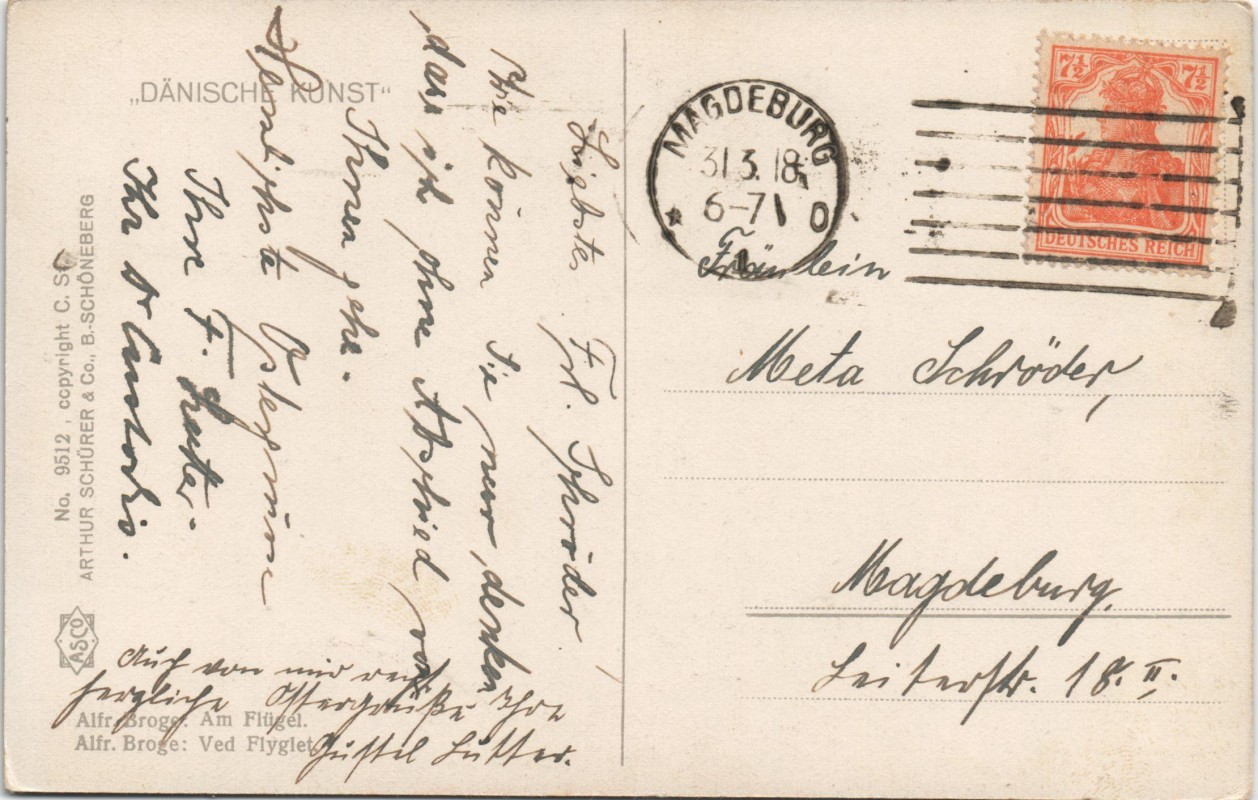 „DÄNISCHE KUNST“
Liebstes Frl. Schröder!
Wie können Sie nur denken
dass ich ohne Abschied von
Ihnen gehe.
Herzlichste Ostergrüsse
Ihre F. Lutter.
Ihr Dr
Auch von mir recht
herzliche Ostergrüße Ihre
Gustel Lutter.
No. 9512, copyright C. S.
ARTHUR SCHÜRER & Co., B.-SCHÖNEBERG
ASCO
Alfr. Broge: Am Flügel.
Alfr. Broge: Ved Flyglet
MAGDEBURG
31 3. 18
6-7
* 1 0
7½ 7½
DEUTSCHES REICH
Fräulein
Meta Schröder,
Magdeburg.
Leiterstr. 18. II.